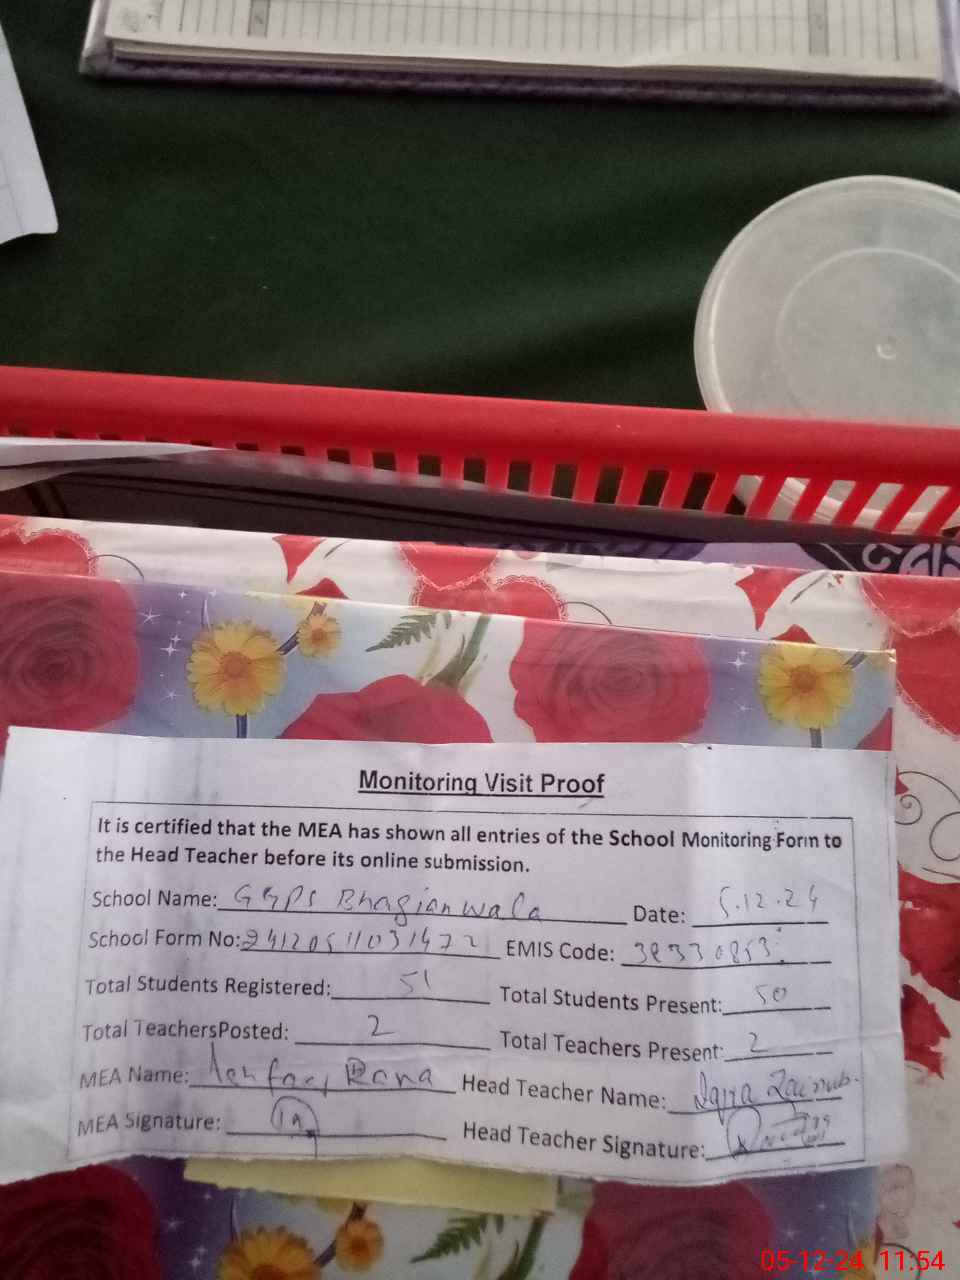 Monitoring Visit Proof
It is certified that the MEA has shown all entries of the School Monitoring Form to
the Head Teacher before its online submission.
School Name: GGPS Bhagianwala Date: 5.12.24
School Form No: 24120511031472 EMIS Code: 38330853
Total Students Registered: 51 Total Students Present: 50
Total TeachersPosted: 2 Total Teachers Present: 2
MEA Name: Ashfaq Rana Head Teacher Name: Iqra Zainub.
MEA Signature: Head Teacher Signature:
05-12-24 11:54